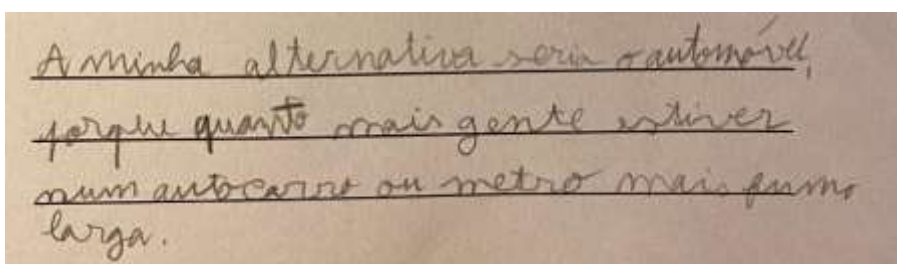 A minha alternativa seria o automóvel,
porque quanto mais gente estiver
num autocarro ou metro mais fumo
larga.